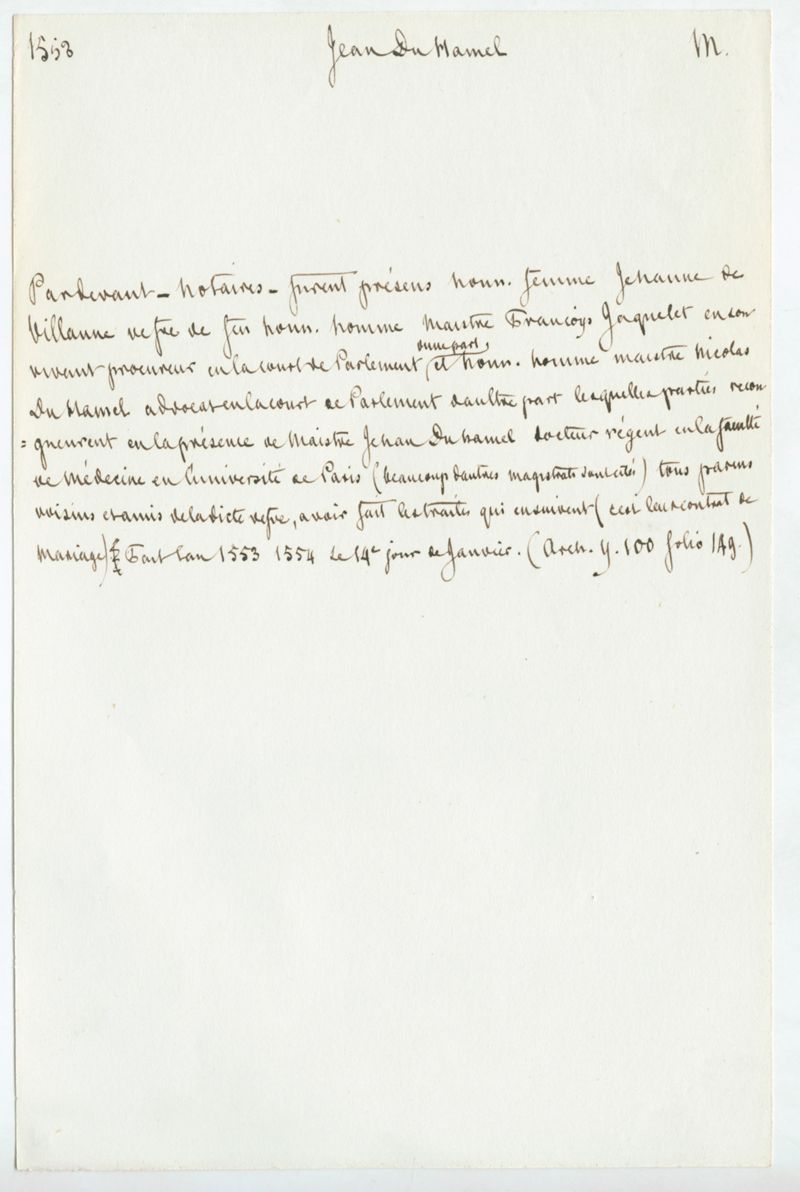 1553 Jean Du Hamel M.
Pardevant - notaires - furent présens honn. femme Jehanne de
Villanne vefve de feu honn. homme maistre Françoys Jaquelet en son
vivant procureur en la court de Parlement d'une part, et honn. homme maistre Nicolas
Du Hamel advocat en la court de Parlement daultre part lesquelles parties recon
= gneurent en la présence de Maistre Jehan Du hamel docteur régent en la faculté
de Médecine en l'université de Paris (beaucoup dautres magistrats sont cités) tous parens
voisins et amis de la dicte vefve, avoir fait les traités qui ensuivent (c'est leur contrat de
mariage) Fait l'an 1553 1554 le 14e jour de Janvier. (Arch. Y. 100 folio 149.)